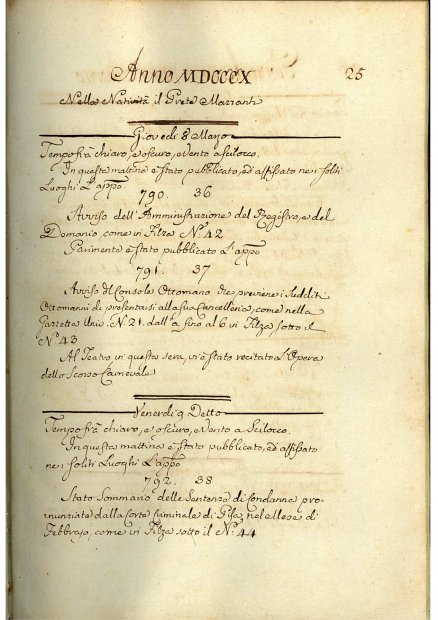 Anno MDCCCX 25
Nella Natività il Prete Marzanti
Giovedi 8 Marzo
Tempo frà chiaro, e oscuro, e Vento a Scilocco.
In questa mattina è stato pubblicato, ed affissato ne i soliti
Luoghi L'appo
790. 36
Avviso dell'Amministrazione del Registro, e del
Demanio, come in Filza N.º 42
Parimente è stato pubblicato L'appo
791. 37
Avviso del Console Ottomano che previene i Sudditi
Ottomanni di presentarsi alla sua Cancelleria, come nella
Gazzetta Univ. N. 21. dall' a fino al 6 in Filza sotto il
N.º 43
Al Teatro in questa sera, vi è stato recitato l'Opera
dello Scorso Carnevale
Venerdi 9 Detto
Tempo frà chiaro, e oscuro, e Vento a Scilocco.
In questa mattina è stato pubblicato, ed affissato
ne i soliti Luoghi L'appo
792. 38
Stato Sommario delle Sentenze di Condanna pro-
nunziate dalla Corte Criminale di Pisa, nel Mese di
Febbrajo, come in Filza sotto il N.º 44